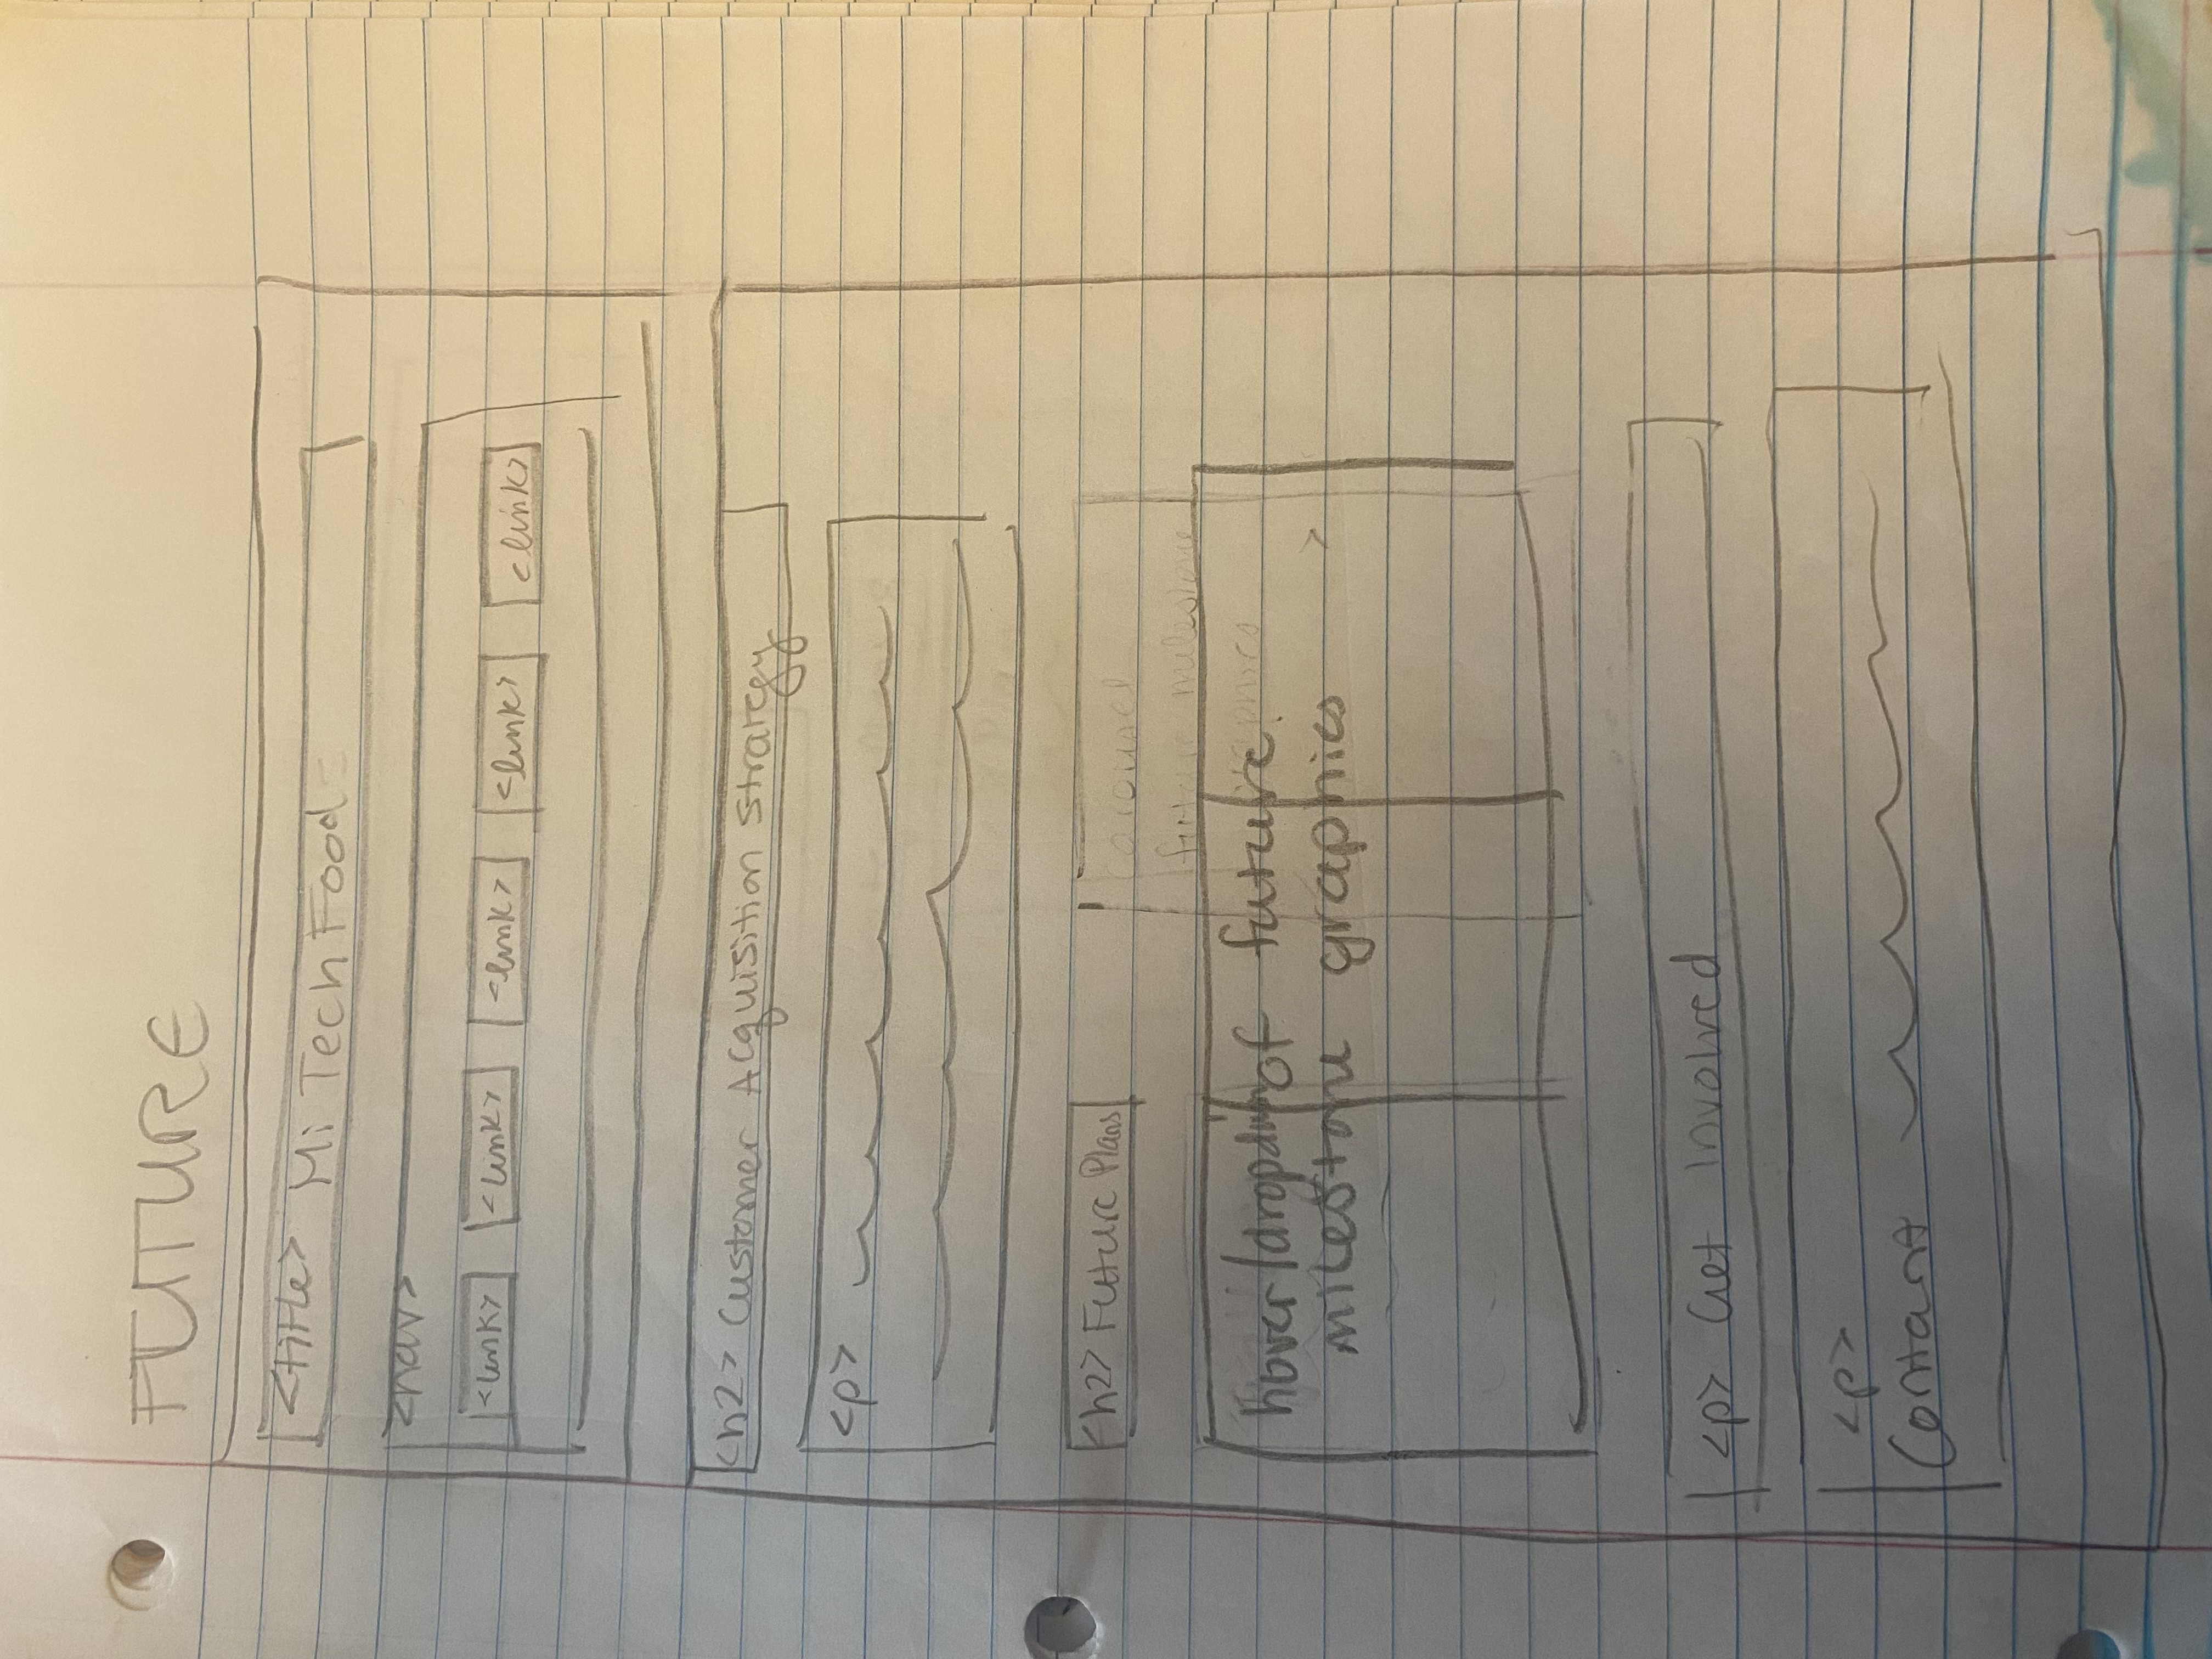 FUTURE
<title> Mi Tech Food
<nav>
<link> <link> <link> <link> <link>
<h2> Customer Acquisition Strategy
<p>
<h2> Future Plans
carousel
future milestone
graphics
hover/dropdown of future
milestone graphics >
<p> Get Involved
<p>
Contant